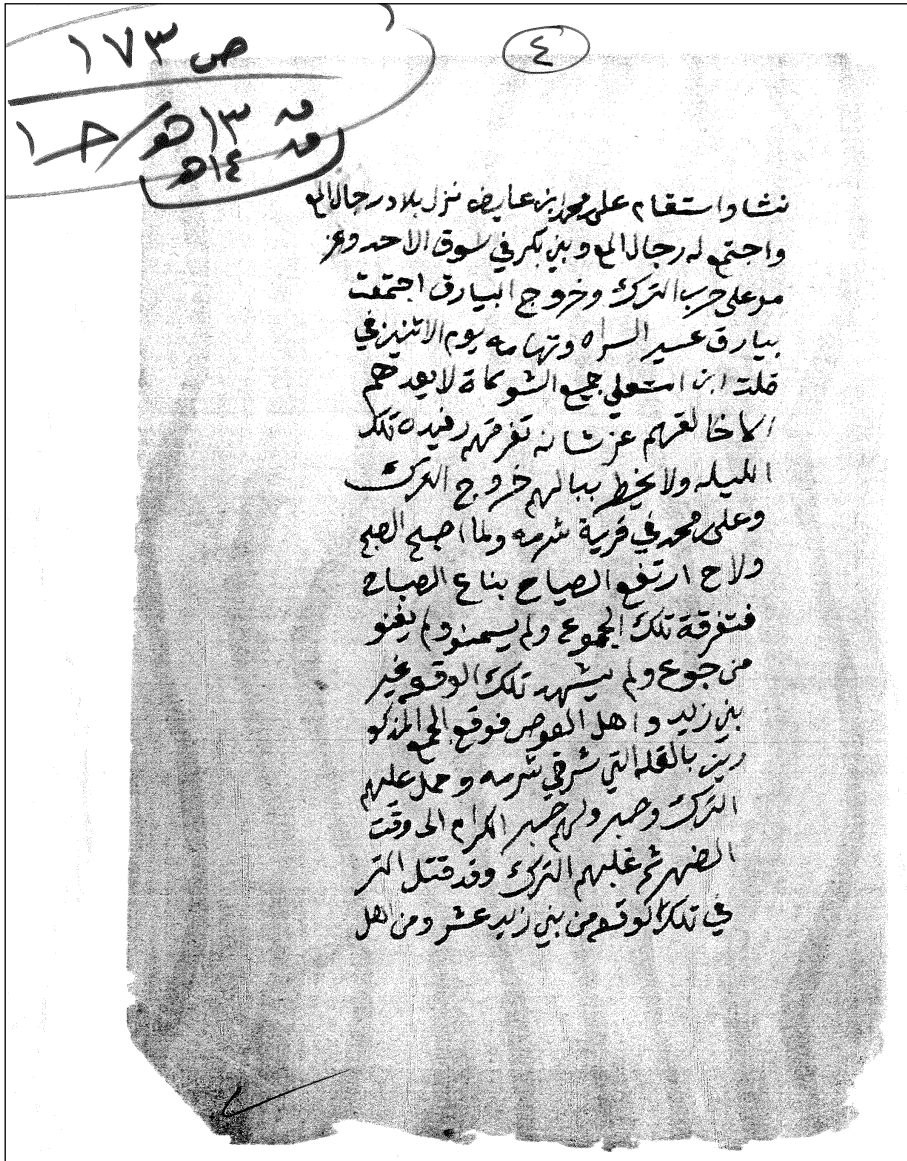 ص ١٧٣
ق ١٣هـ / ج ١
ق ١٤هـ
٤
نشا واستقام على محمد ابن عايض نزل بلاد رجال المع
واجتمع له رجال المع وبني بكر في سوق الاحد وعز
مو على حرب الترك وخروج البيارق اجتمعت
بيارق عسير السراه وتهامه يوم الاثنين في
قلت ابن استعلي جميع الشوكاة لا يعدهم
الا خالقهم عز شانه تفرقهم رفيده تلك
الليله ولا يخطر ببالهم خروج الترك
وعلى محمد في قرية شرمه ولما اصبح الصبح
ولاح ارتفع الصياح بناع الصباح
فتفرقة تلك الجموع ولم يسمنو ولم يغنو
من جوع ولم يشهد تلك الوقعه غير
بني زيد واهل العوص فوقع الجمع المذكو
رين بالقله التي شرقي شرمه وحمل عليهم
الترك وصبرو لهم صبر الكرام الى وقت
الضهر ثم غلبهم الترك وقد قتل التر
في تلك الوقعه من بني زيد عشر ومن اهل